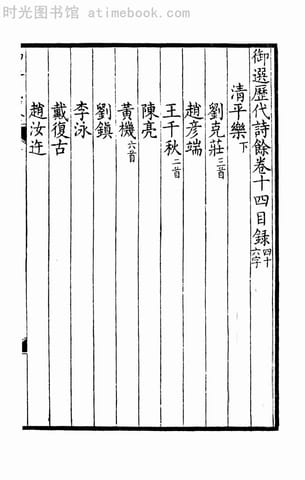 时光图书馆 - atimebook.com
御選歷代詩餘卷十四目録四十六字
清平樂下
劉克莊三首
趙彦端
王千秋二首
陳亮
黃機六首
劉鎮
李泳
戴復古
趙汝迕